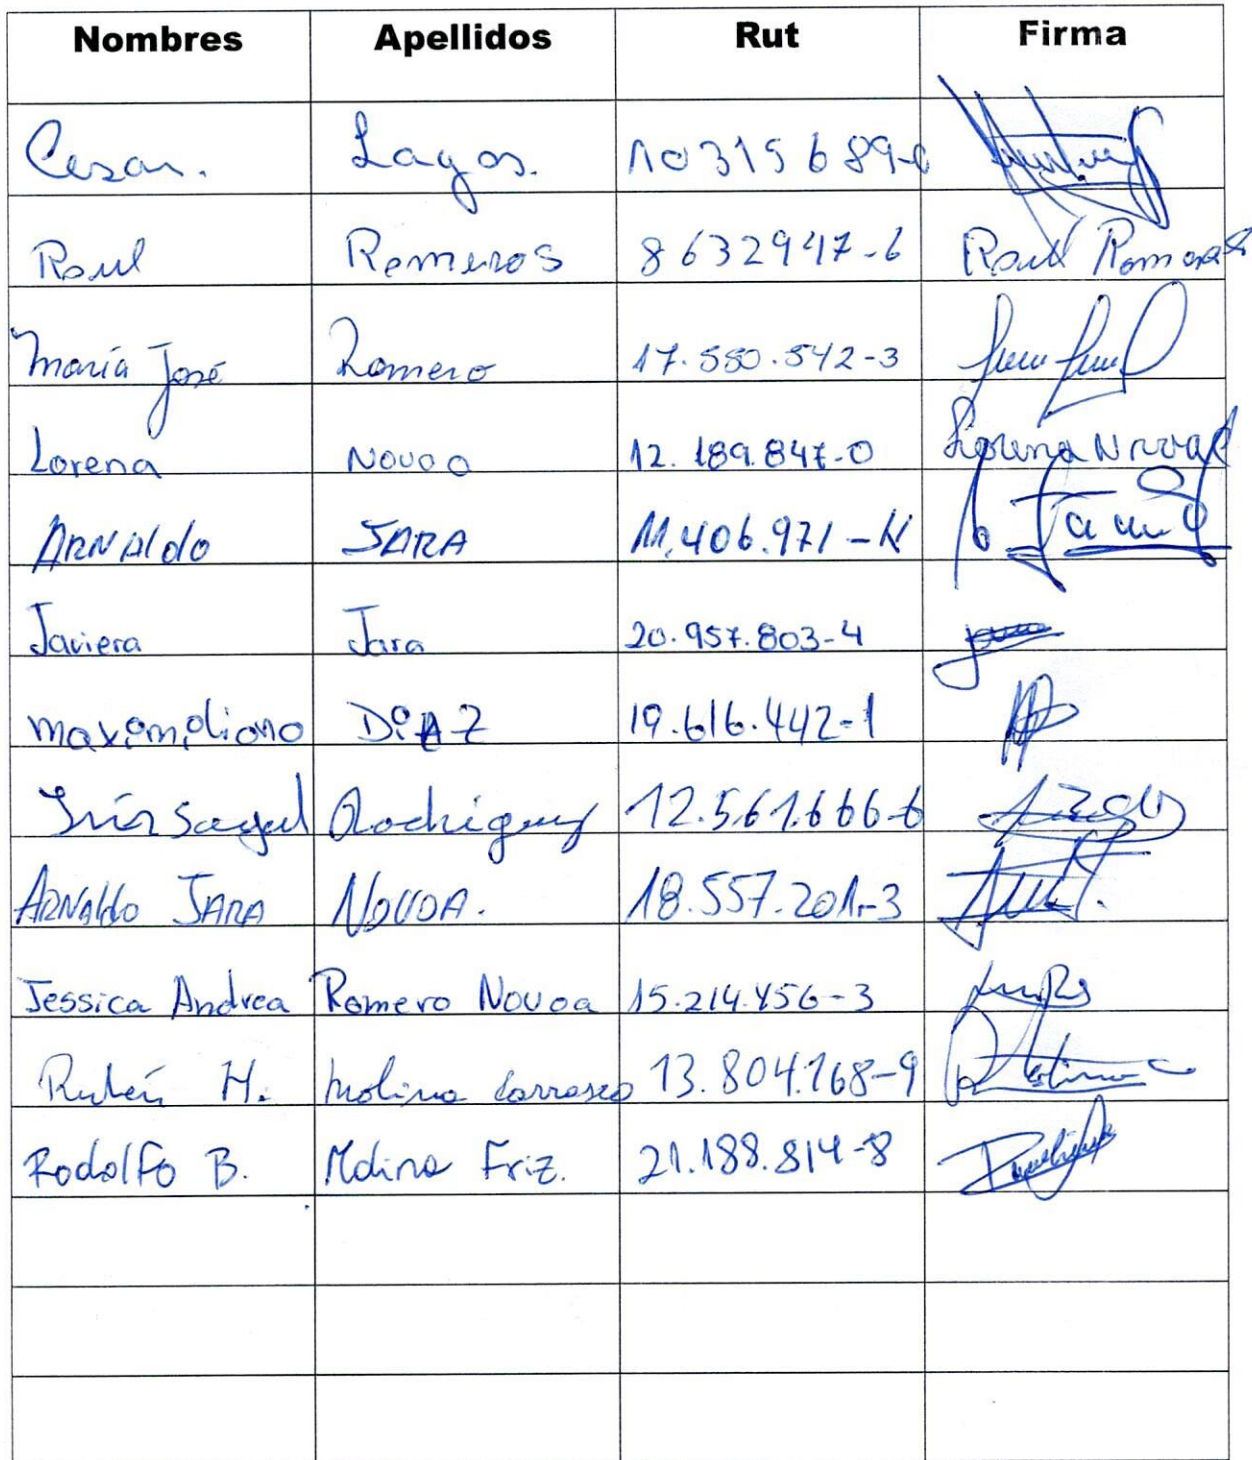 Nombres Apellidos Rut Firma
Cesar. Lagos. 10315689-
Raul Romeros 8632947-6 Raul Romeros
María José Romero 17.550.542-3
Lorena Novoa 12.189.847-0 Lorena Novoa
ARNAldo JARA 11.406.971-K Jara
Javiera Jara 20.957.803-4
maximiliano DiAZ 19.616.442-1
Inés Sagal Rodriguez 12.561.666-6
ARNAldo JARA NOVOA. 18.557.201-3
Jessica Andrea Romero Novoa 15.214.456-3
Rubén H. Molina Carrasco 13.804.168-9
Rodolfo B. Molina Friz. 21.188.814-8